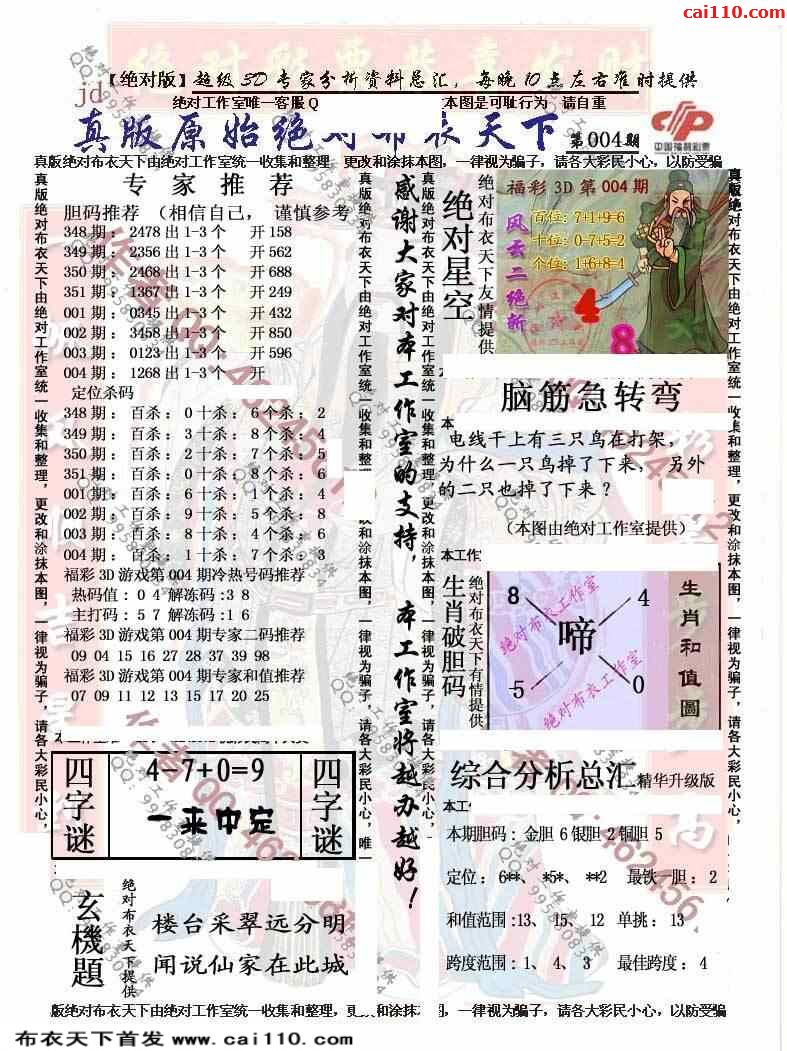 cai110.com
【绝对版】超级3D专家分析资料总汇，每晚10点左右准时提供
jd
绝对工作室唯一客服Q
本图是可耻行为 请自重
真版原始绝对布衣天下
第004期
中国福利彩票
真版绝对布衣天下由绝对工作室统一收集和整理，更改和涂抹本图，一律视为骗子，请各大彩民小心，以防受骗
专家推荐
胆码推荐 （相信自己， 谨慎参考
348期： 2478出1-3个 开158
349期： 2356出1-3个 开562
350期： 2468出1-3个 开688
351期： 1367出1-3个 开249
001期： 0345出1-3个 开432
002期： 3458出1-3个 开850
003期： 0123出1-3个 开596
004期： 1268出1-3个 开
定位杀码
348期： 百杀： 0十杀： 6个杀： 2
349期： 百杀： 3十杀： 8个杀： 4
350期： 百杀： 2十杀： 7个杀： 5
351期： 百杀： 0十杀： 8个杀： 6
001期： 百杀： 6十杀： 1个杀： 4
002期： 百杀： 9十杀： 5个杀： 8
003期： 百杀： 8十杀： 4个杀： 6
004期： 百杀： 1十杀： 7个杀： 3
福彩3D游戏第004期冷热号码推荐
热码值： 0 4 解冻码：3 8
主打码： 5 7 解冻码：1 6
福彩3D游戏第004期专家二码推荐
09 04 15 16 27 28 37 39 98
福彩3D游戏第004期专家和值推荐
07 09 11 12 13 15 17 20 25
四字谜
4-7+0=9
一来中定
四字谜
玄機題
绝对布衣天下提供
楼台采翠远分明
闻说仙家在此城
真版绝对布衣天下由绝对工作室统一收集和整理，更改和涂抹本图，一律视为骗子，请各大彩民小心，
感谢大家对本工作室的支持，本工作室将越办越好！
绝对星空
绝对布衣天下友情提供
福彩3D第004期
风云二绝斩
百位：7+1+9=6
十位：0-7+5=2
个位：1+6+8=4
4
8
脑筋急转弯
电线干上有三只鸟在打架，
为什么一只鸟掉了下来， 另外
的二只也掉了下来？
（本图由绝对工作室提供）
本工作
生肖破胆码
绝对布衣天下有情提供
8
4
啼
5
0
绝对布衣工作室
绝对布衣工作室
生肖和值圖
综合分析总汇 精华升级版
本工作
本期胆码： 金胆 6 银胆 2 铜胆 5
定位： 6**、 *5*、 **2 最铁一胆： 2
和值范围：13、 15、 12 单挑： 13
跨度范围：1、 4、 3 最佳跨度： 4
版绝对布衣天下由绝对工作室统一收集和整理，更改和涂抹本图，一律视为骗子，请各大彩民小心，以防受骗
布衣天下首发 www.cai110.com